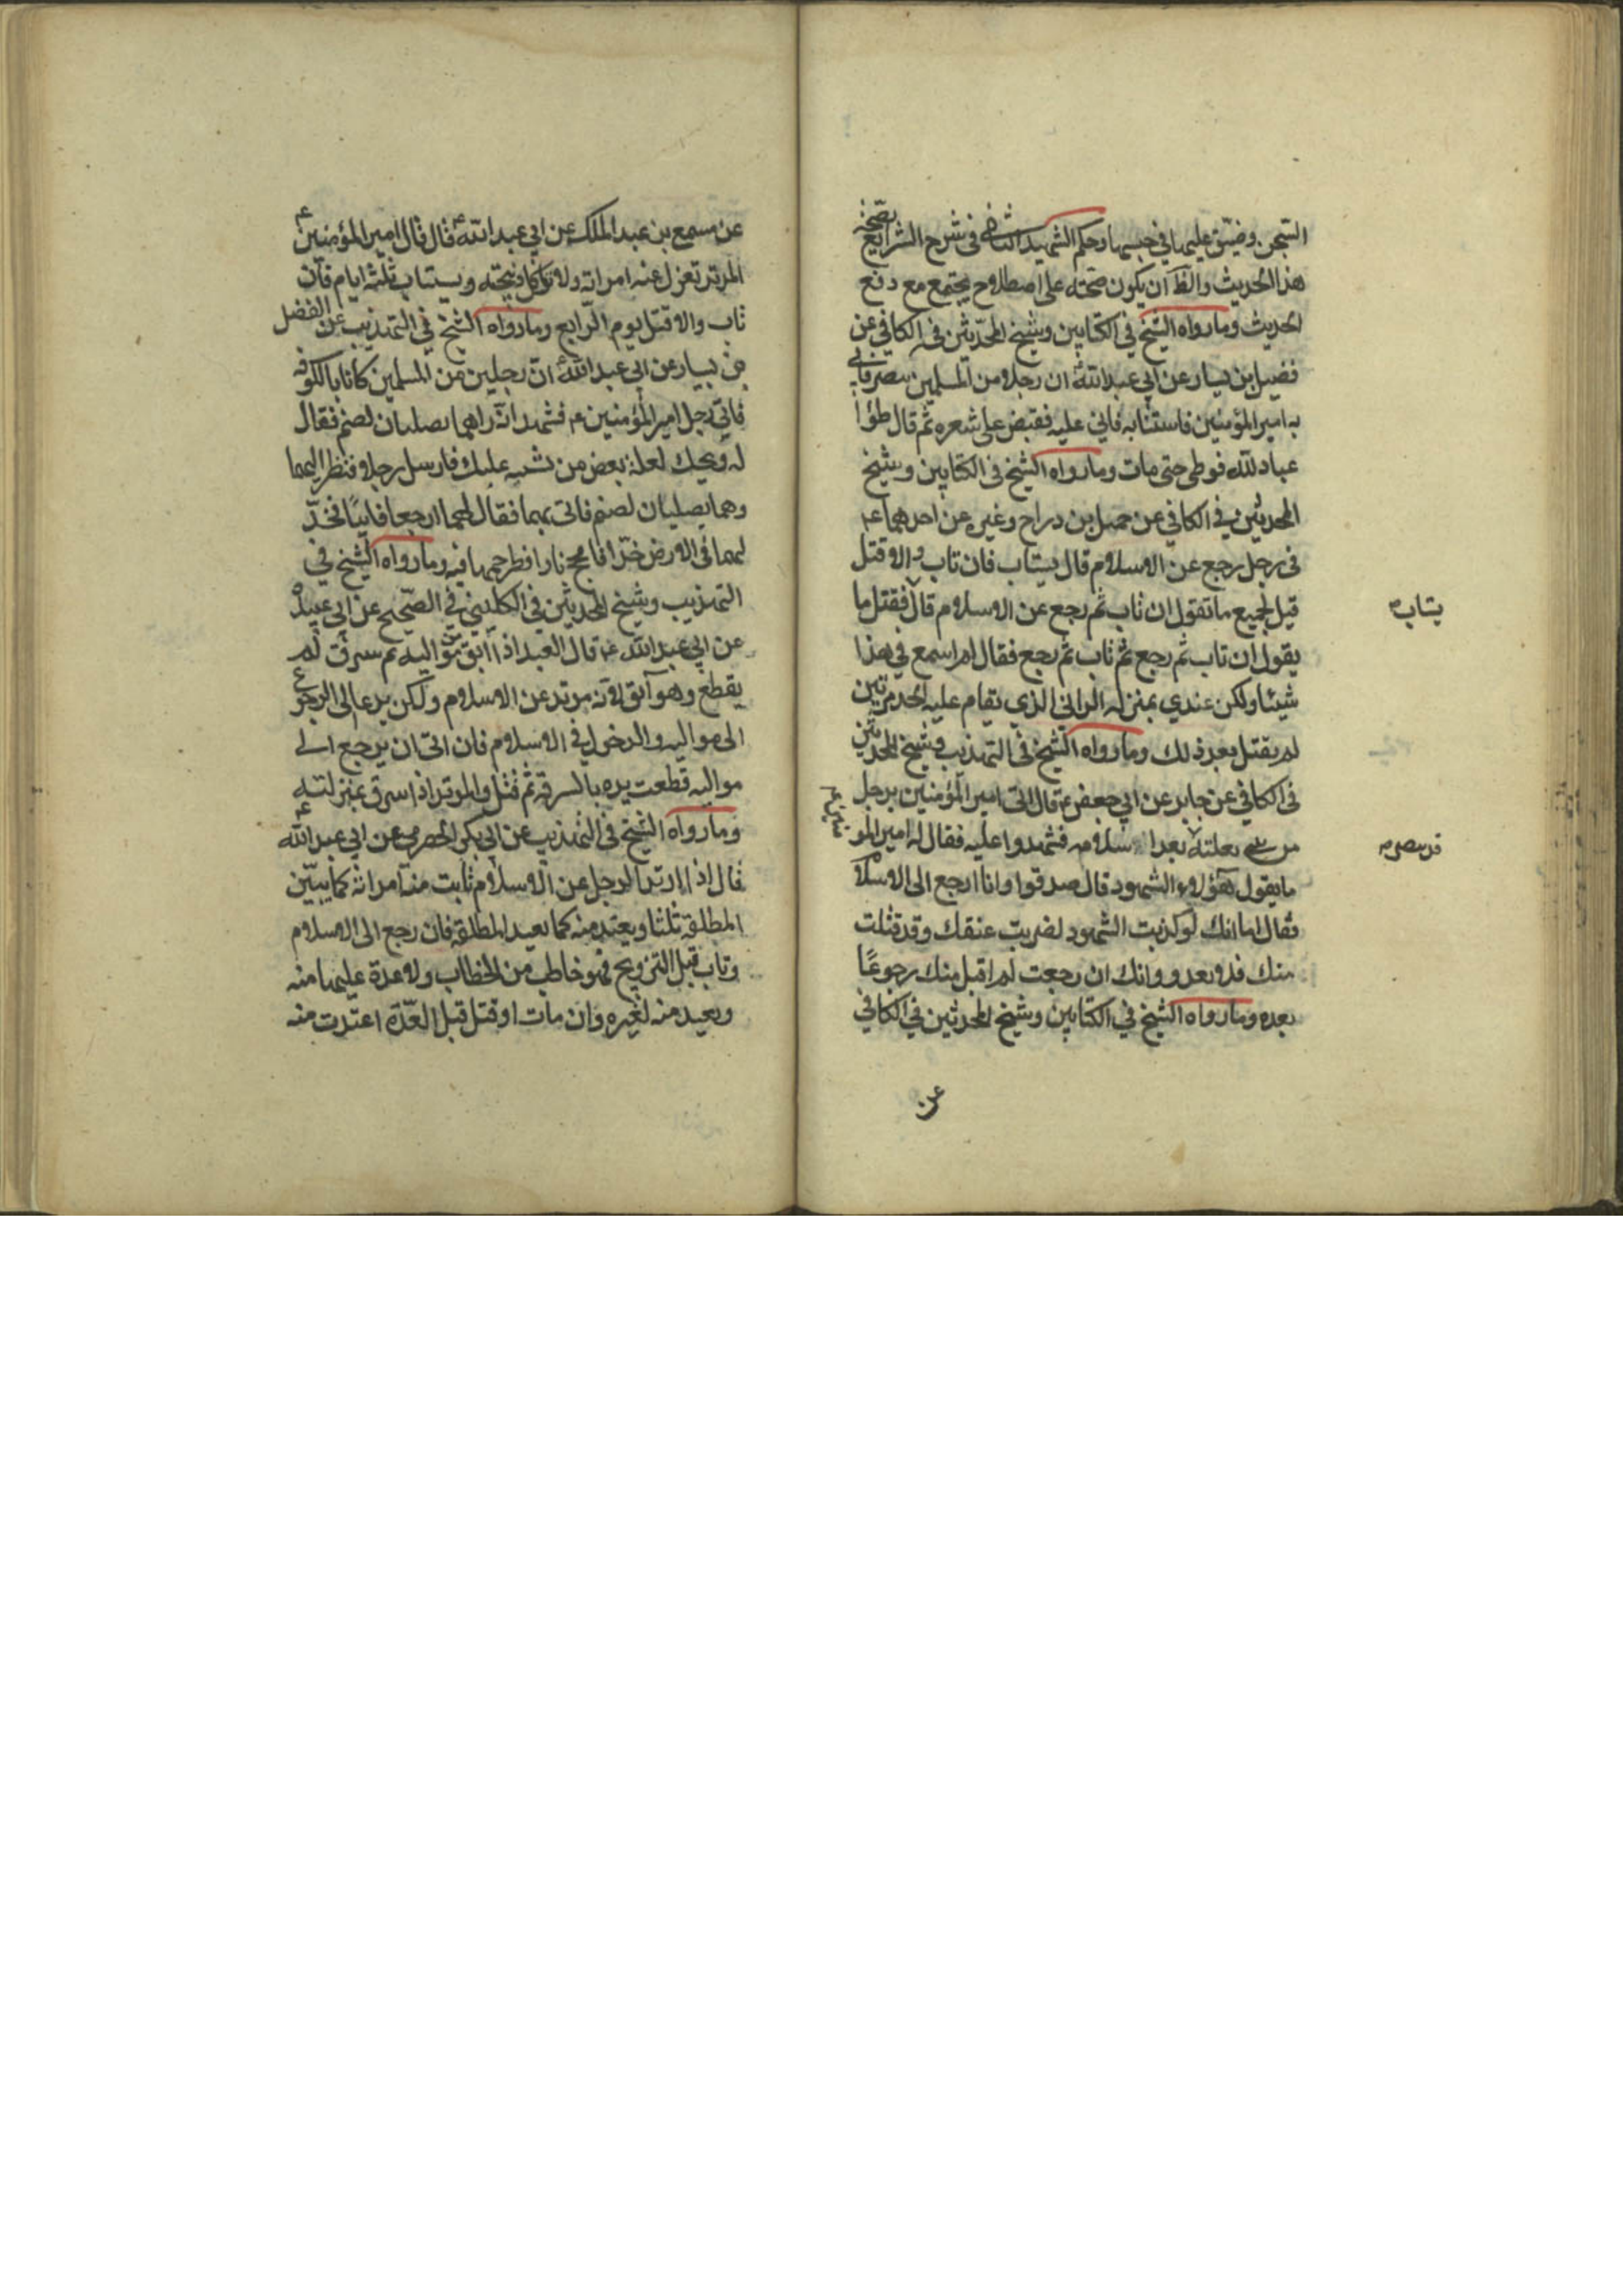 السّجن وضيّق عليها في حبسها وحكم الشهيد الثاني في شرح الشرايع بصحّة
هذا الحديث والظ ان يكون صحّته على اصطلاح يجتمع مع دفع
الحديث وما رواه الشيخ في الكتابين وشيخ المحدّثين في الكافي عن
فضيل بن يسار عن ابي عبد الله ع ان رجلا من المسلمين تنصر فاتي
به امير المؤمنين فاستتابه فابي عليه فقبض على شعره ثم قال طؤا
عباد الله فوطي حتى مات وما رواه الشيخ في الكتابين وشيخ
المحدثين في الكافي عن جميل بن دراج وغيره عن احدهما ع
في رجل رجع عن الاسلام قال يستاب فان تاب والا قتل
قيل لجميع ما تقول ان تاب ثم رجع عن الاسلام قال فقتل ما
يقول ان تاب ثم رجع ثم تاب ثم رجع فقال لم اسمع في هذا
شيئا ولكن عندي بمنزله الزاني الذي يقام عليه الحد مرتين
لم يقتل بعد ذلك وما رواه الشيخ في التهذيب وشيخ المحدثين
في الكافي عن جابر عن ابي جعفر ع قال اتى امير المؤمنين برجل
من بعد اسلامه فشهدوا عليه فقال له امير المو
ما يقول هؤلاء الشهود قال صدقوا وانا ارجع الى الاسلام
فقال اما انك لو كذبت الشهود لضربت عنقك وقد قتلت
منك فلا بعد ووانك ان رجعت لم اقبل منك رجوعًا
بعده وما رواه الشيخ في الكتابين وشيخ المحدثين في الكافي
عن
يتاب
عن مسمع بن عبد الملك عن ابي عبد الله ع قال قال امير المؤمنين ع
المرتد تعزل عنه امراته ولا تاكل ذبيحته ويستتاب ثلثه ايام فان
تاب والا قتل يوم الرابع وما رواه الشيخ في التهذيب عن الفضل
بن يسار عن ابي عبد الله ع ان رجلين من المسلمين كانا بالكوفه
فاتى رجل امير المؤمنين ع فشهد انّه راهما يصليان لصنم فقال
له ويحك لعله بعض من تشبه عليك فارسل رجلا فنظر اليهما
وهما يصليان لصنم فاتى بهما فقال لهما ارجعا فابيًا فخدّ
لهما في الارض خدّا فاجج نارا فطرحهما فيه وما رواه الشيخ في
التهذيب وشيخ المحدثين في الكليني في الصّحيح عن ابي عبيدة
عن ابي عبد الله ع قال العبد اذا ابق من مواليه ثم سرق لم
يقطع وهو آبق لانه مرتد عن الاسلام ولكن يدعا الى الرجوع
الى مواليه والدخول في الاسلام فان ابى ان يرجع الى
مواليه قطعت يده بالسرقه ثم قتل والمرتد اذا سرق بمنزلته
وما رواه الشيخ في التهذيب عن ابي بكر الحضرمي عن ابي عبد الله ع
قال اذا ارتد الرجل عن الاسلام ثابت منه امراته كما يبيّن
المطلقه ثلثا ويعتد منه كما يعيد المطلقه فان رجع الى الاسلام
وتاب قبل التزويج فهو خاطب من الخطاب ولا عدة عليها منه
ويعيد منه لغيره وان مات او قتل قبل العدّة اعتدت منه